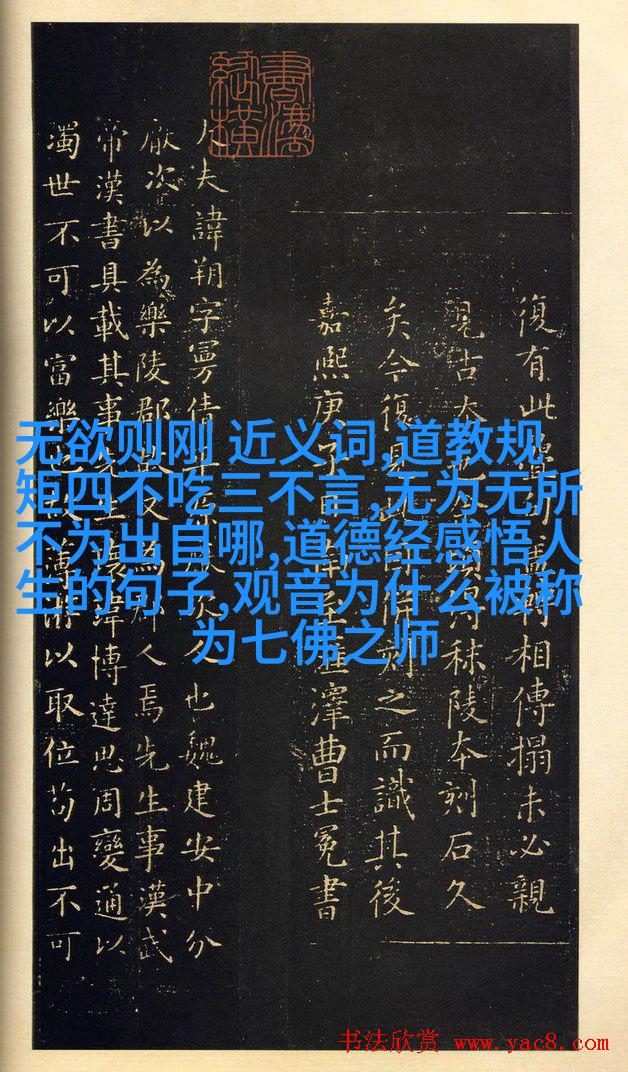 无欲则刚 近义词,道教规
矩四不吃三不言,无为无所
不为出自哪,道德经感悟人
生的句子,观音为什么被称
为七佛之师
復有此轉相傳搨未必親
見古秣陵本刻石久
矣今復見刻之而識其後
嘉熙庚子曹士冕書
大夫諱朔字曼倩次人也魏建安中分
厭次以為樂陵郡又為郡人焉先生事漢武
帝漢書具載其事先生瑋博達思周變通以
濁世不可以富樂也薄游以取位苟出不可
书法欣赏 www.yac8.com